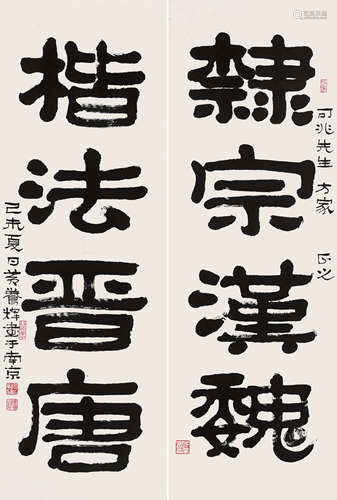 隸宗漢魏
可兆先生 方家 正之
楷法晋唐
己未夏日黄養輝書于南京